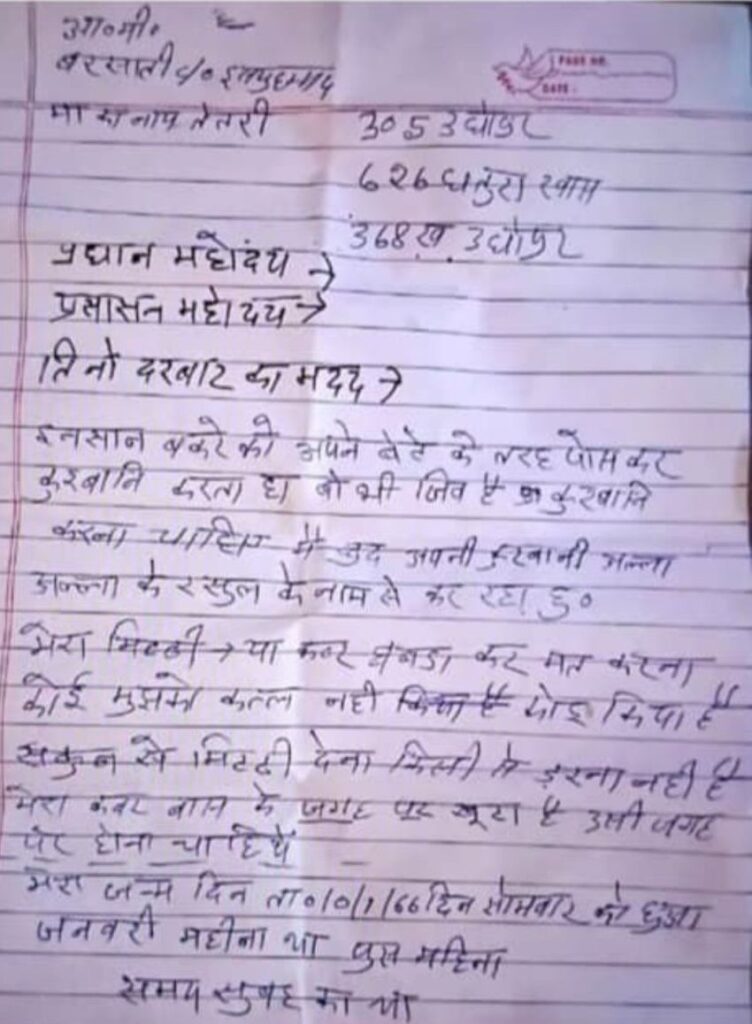 बरसाती
PAGE NO.
DATE:
मा का नाम तेतरी
305 उधोपुर
626 धतुरा खास
368 ख. उधोपुर
प्रधान महोदय →
प्रसासन महोदय →
तिनो दरबार का मदद →
इनसान बकरे को अपने बेटे के तरह पोस कर
कुरबानि करता है। वो भी जिव है कुरबानि
करना चाहिए मै खुद अपनी कुरबानी अल्ला
अल्ला के रसुल के नाम से कर रहा हु०
मेरा मिटटी → या कबर घबडा कर मत करना
कोई मुझको कत्ल नही किया है
सकुन से मिटटी देना किसी से डरना नही है
मेरा कबर बास के जगह पर खूटा है उसी जगह
पर होना चाहिये
मेरा जन्म दिन ता० दिन सोमवार को हुआ
जनवरी महीना था पुस महिना
समय सुबह का था